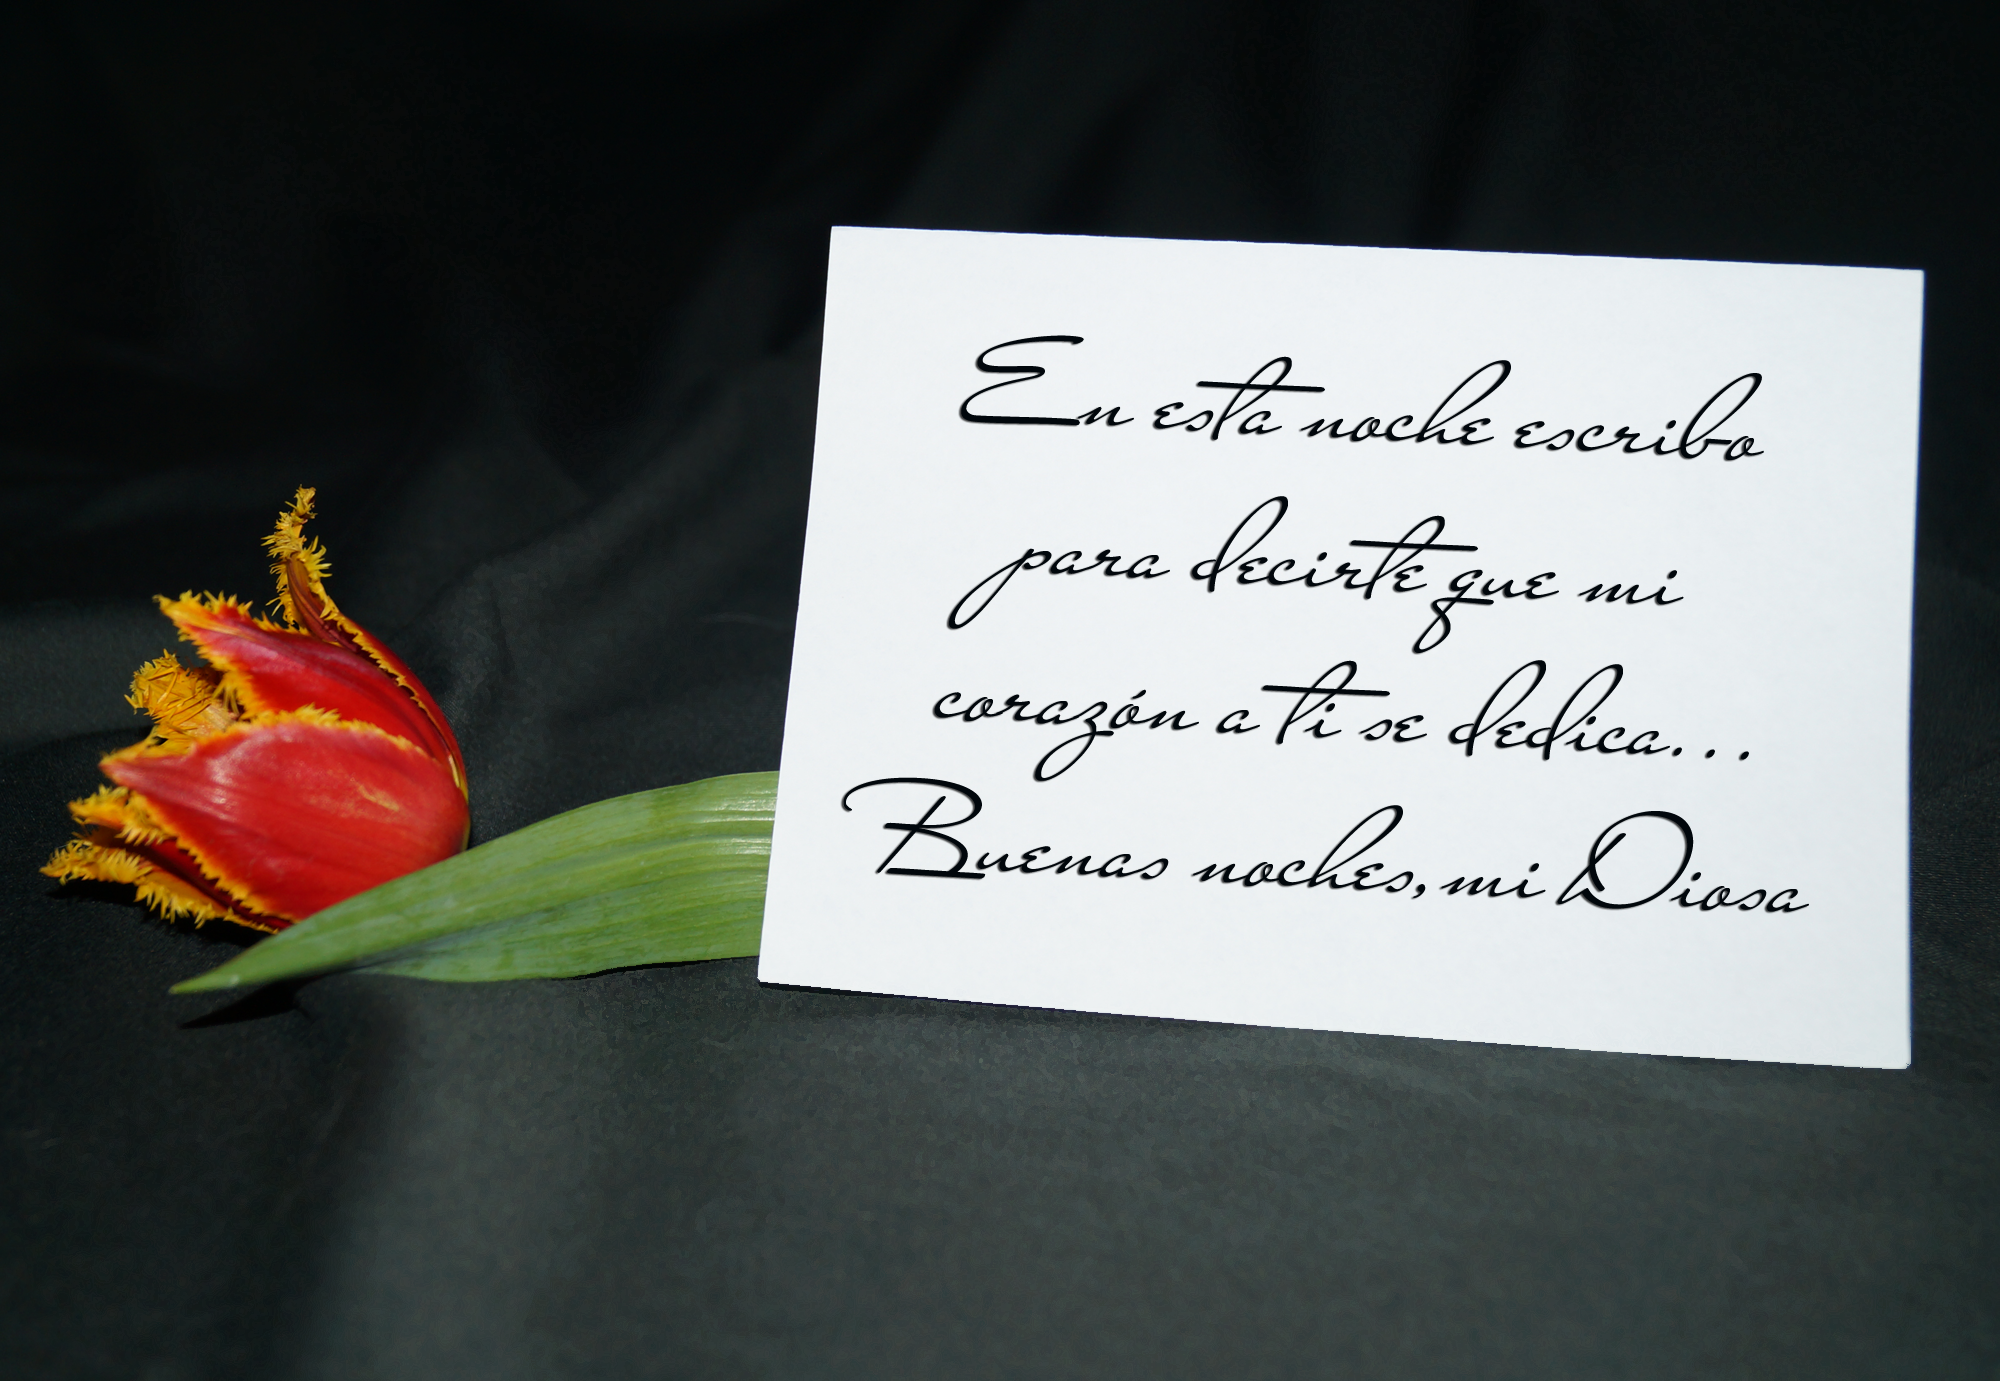 En esta noche escribo
para decirte que mi
corazón a ti se dedica...
Buenas noches, mi Diosa